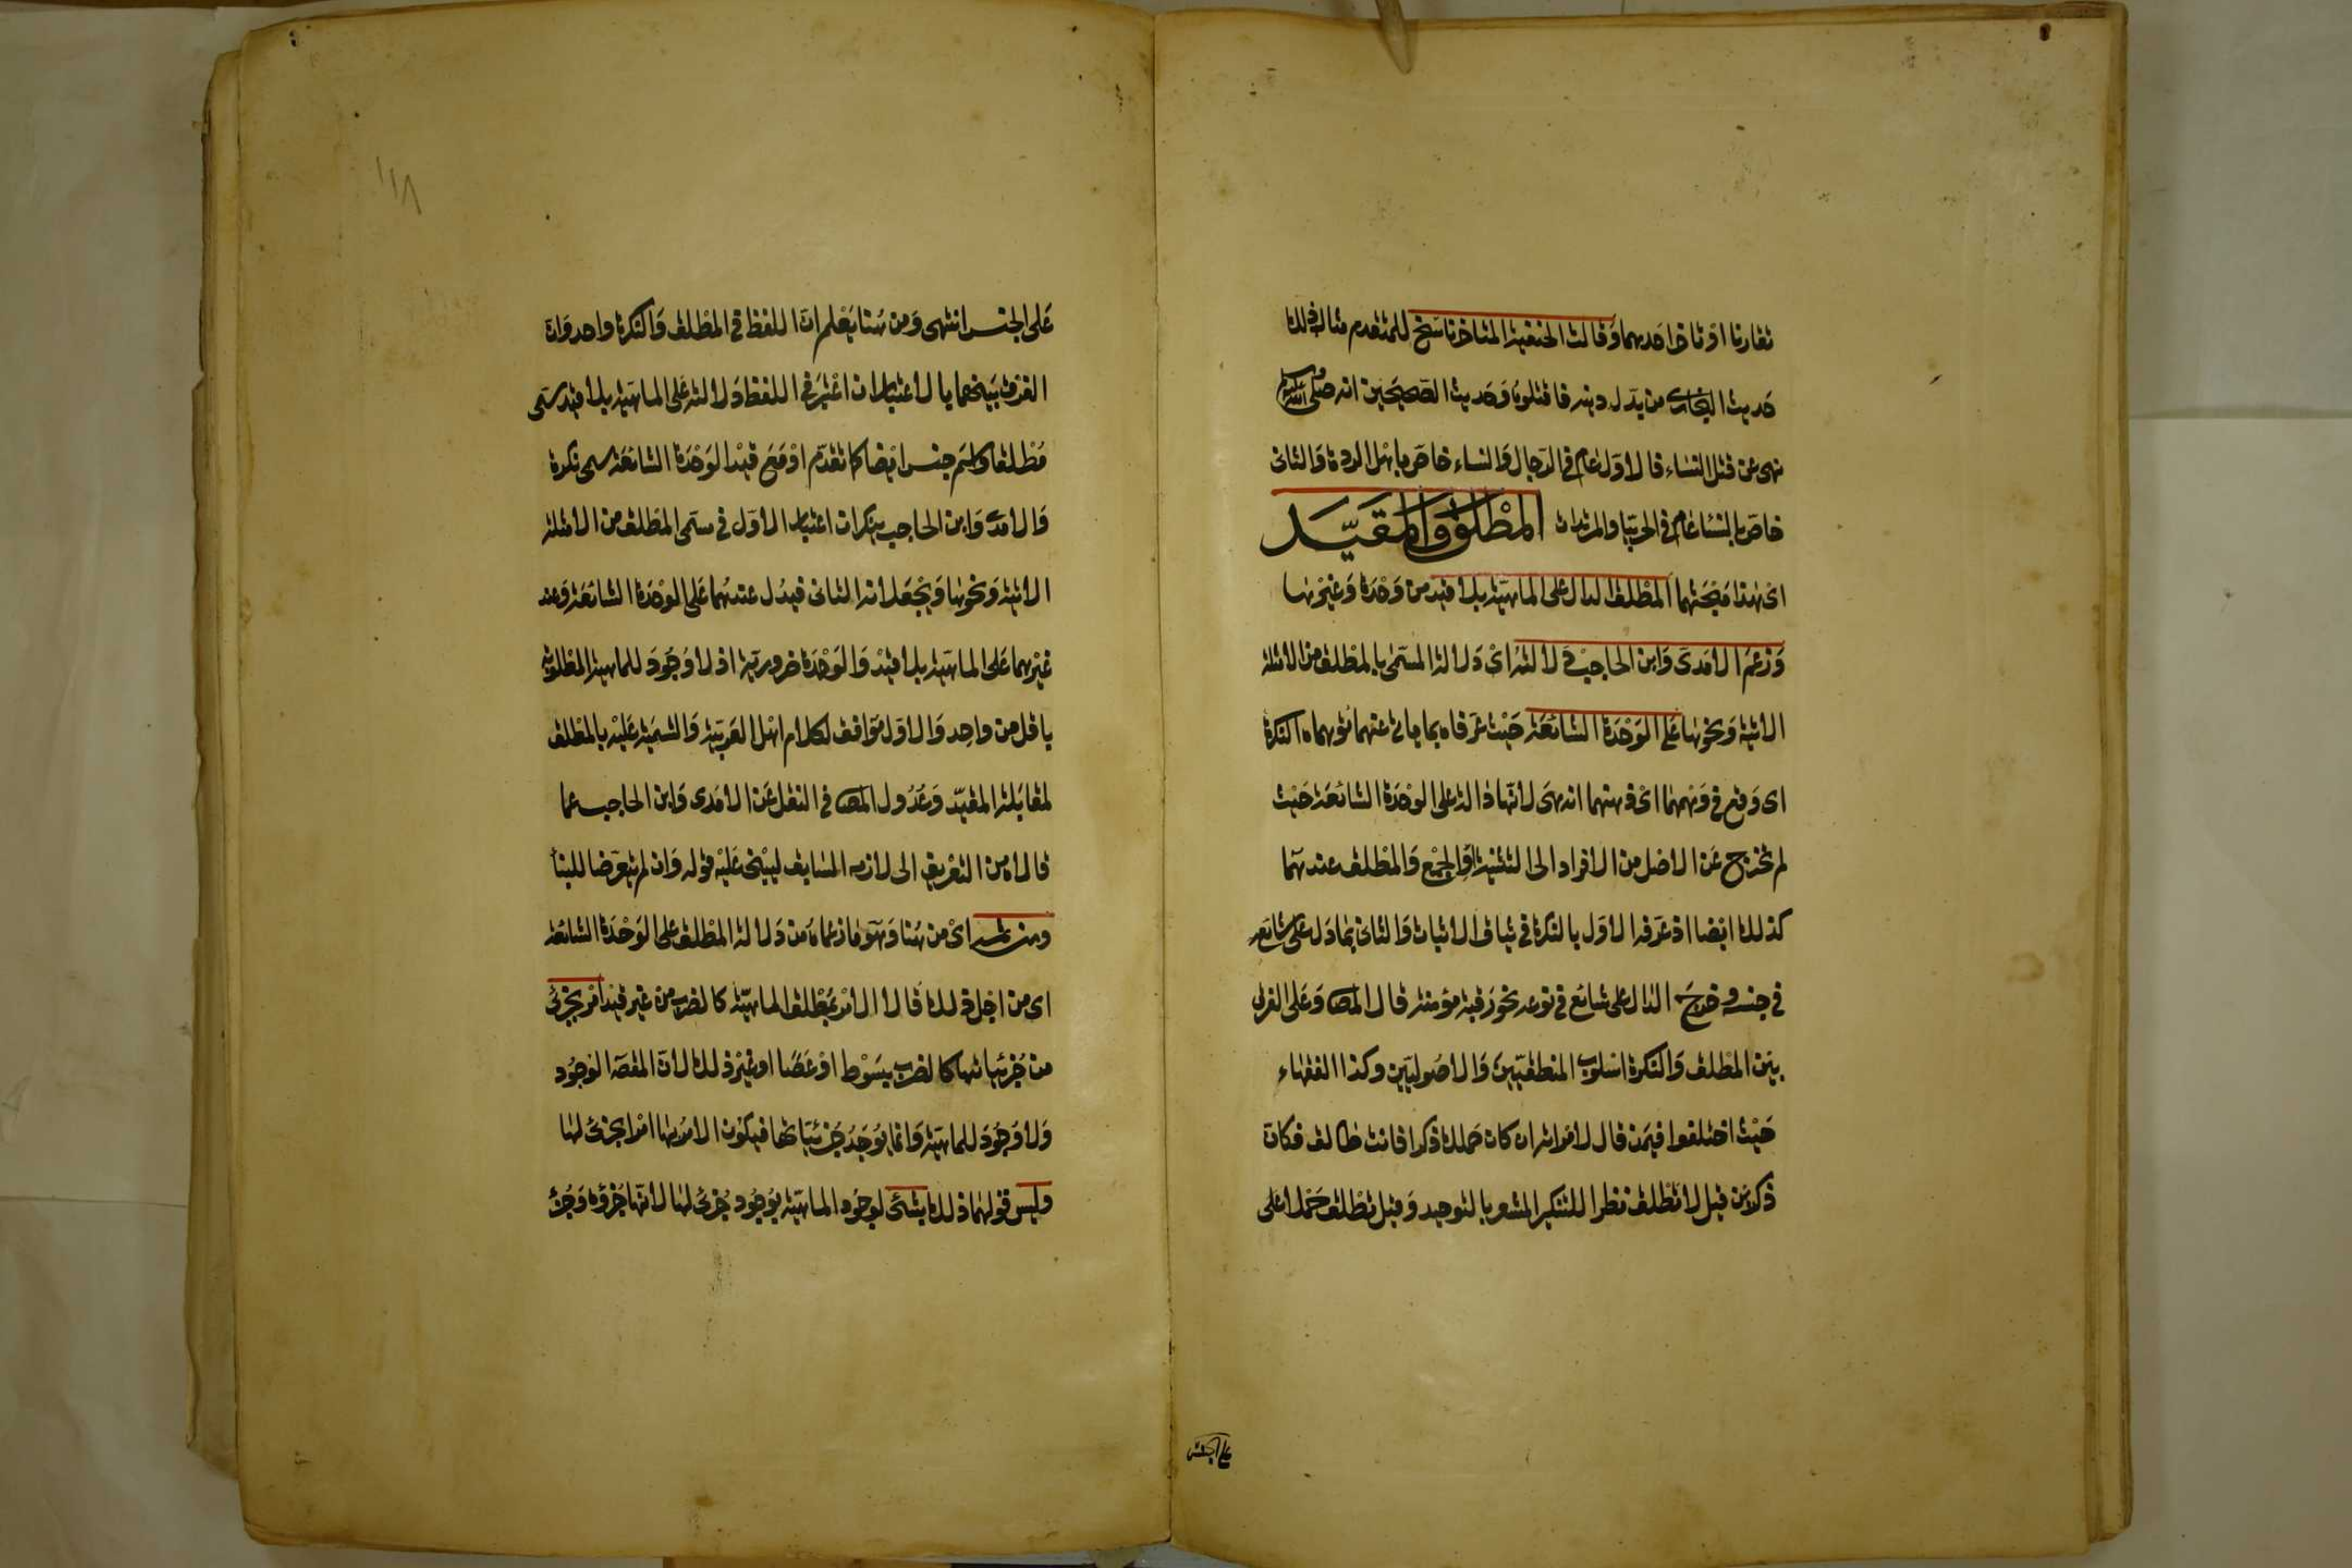 تقارنا او تاخر احدهما وقالت الحنفية المتاخر ناسخ للمتقدم مثال ذلك
حديث البخاري من بدل دينه فاقتلوه وحديث الصحيحين انه صلى الله عليه وسلم
نهى عن قتل النساء فالاول عام في الرجال والنساء خاص باهل الردة والثاني
خاص بالنسا عام في الحربيا والمرتدات المطلق والمقيد
اي هذا مبحثهما المطلق الدال على الماهية بلا قيد من وحدة وغيرها
وزعم الامدي وابن الحاجب دلالته اي دلالة المسمى بالمطلق من الامثلة
الاتية ونحوها على الوحدة الشائعة حيث عرفاه بما ياتي عنهما توهماه النكرة
اي وقع في وهمهما اي ذهنهما انه هي لانها دالة على الوحدة الشائعة حيث
لم تخرج عن الاصل من الافراد الى التثنية او الجمع والمطلق عندهما
كذلك ايضا اذ عرفه الاول بالنكرة في سياق الاثبات والثاني بما دل على شائع
في جنسه وخرج الدال على شائع في نوعه نحو رقبة مؤمنة قال المص وعلى الفرق
بين المطلق والنكرة اسلوب المنطقيين والاصوليين وكذا الفقهاء
حيث اختلفوا فيمن قال لامراته ان كان حملك ذكرا فانت طالق فكان
ذكرين قيل لا تطلق نظرا للتنكير المشعر بالتوحيد وقيل تطلق حملا على
على الجنس
١١٨
على الجنس انتهى ومن هنا يعلم ان اللفظ في المطلق والنكرة واحد وان
الفرق بينهما بالاعتبار ان اعتبر في اللفظ دلالته على الماهية بلا قيد سمى
مطلقا واسم جنس ايضا كما تقدم او مع قيد الوحدة الشائعة سمى نكرة
والامدي وابن الحاجب ينكران اعتبار الاول في مسمى المطلق من الامثلة
الاتية ونحوها ويجعلانه الثاني فيدل عندهما على الوحدة الشائعة وعند
غيرهما على الماهية بلا قيد والوحدة ضرورية اذ لا وجود للماهية المطلوبة
باقل من واحد والاول موافق لكلام اهل العربية والتسمية عليه بالمطلق
لمقابلة المقيد وعدول المص في النقل عن الامدي وابن الحاجب عما
قالاه من التعريف الى لازمه السابق ليبني عليه قوله وان لم يتعرضا للبنا
ومن ثم اي من هنا وهو ما زعماه من دلالة المطلق على الوحدة الشائعة
اي من اجل ذلك قالا الامر بمطلق الماهية كالضرب من غير قيد امر بجزئي
من جزئياتها كالضرب بسوط او عصا او غير ذلك لان المقصد الوجود
ولا وجود للماهية وانما يوجد جزئياتها فيكون الامر بها امرا بجزئي لها
وليس قولهما ذلك بشئ لوجود الماهية بوجود جزئي لها لانها جزؤه وجزء